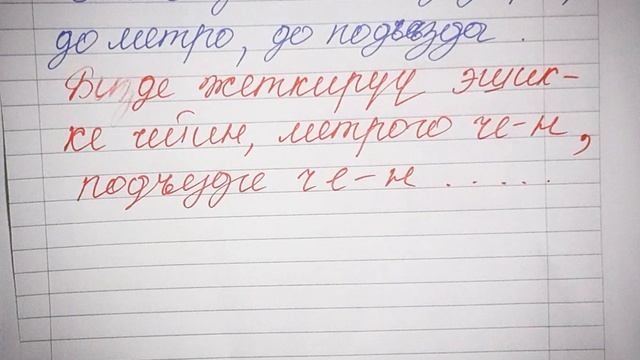 до метро, до подъезда.
Бизде жеткирүү эшик-
ке чейин, метрого че-н,
подъезде че-н .....